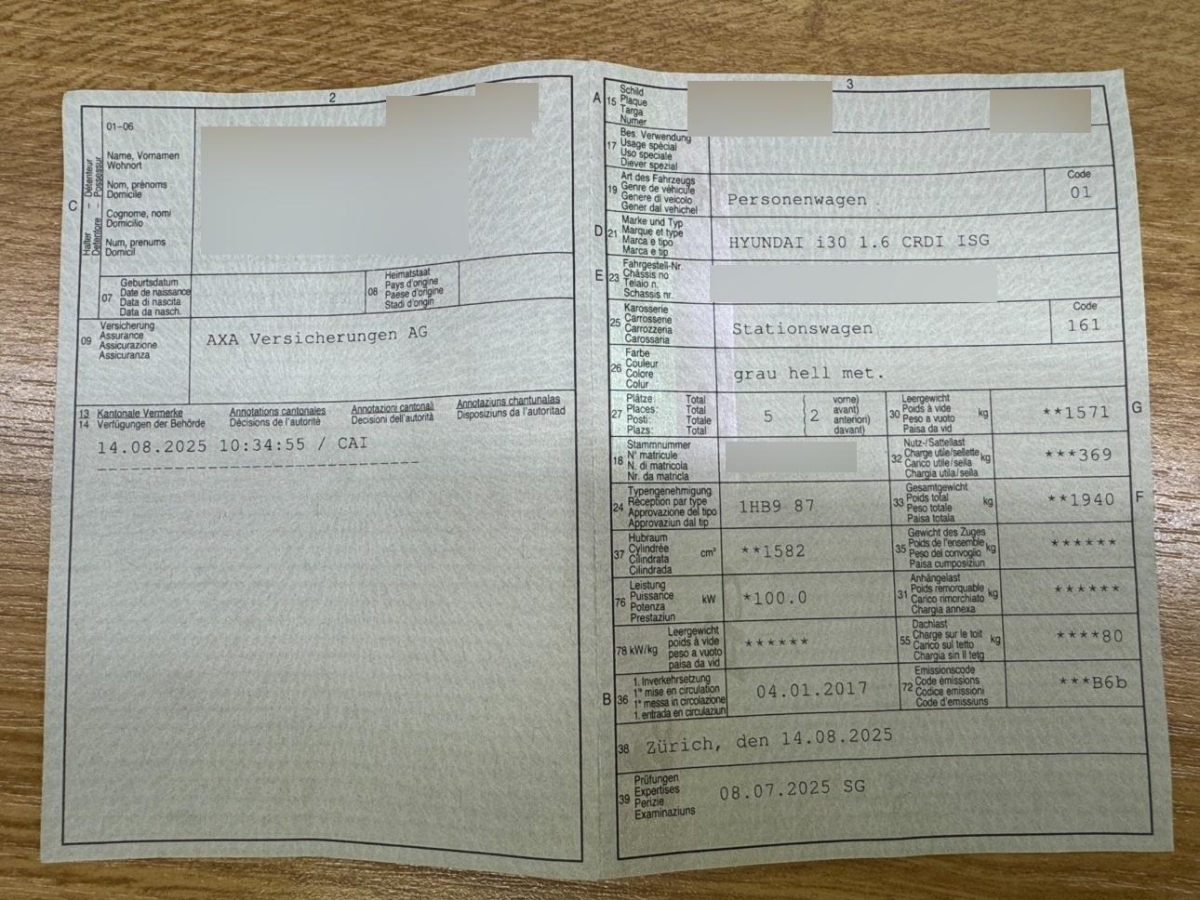 2
C
Halter - Détenteur
Detentore - Possessur
01-06
Name, Vornamen
Wohnort
Nom, prénoms
Domicile
Cognome, nomi
Domicilio
Num, prenums
Domicil
07
Geburtsdatum
Date de naissance
Data di nascita
Data da nasch.
08
Heimatstaat
Pays d'origine
Paese d'origine
Stadi d'origin
09
Versicherung
Assurance
Assicurazione
Assicuranza
AXA Versicherungen AG
13
14
Kantonale Vermerke
Verfügungen der Behörde
Annotations cantonales
Décisions de l'autorité
Annotazioni cantonali
Decisioni dell'autorità
Annotaziuns chantunalas
Disposiziuns da l'autoritad
14.08.2025 10:34:55 / CAI
3
A 15
Schild
Plaque
Targa
Numer
17
Bes. Verwendung
Usage spécial
Uso speciale
Diever spezial
19
Art des Fahrzeugs
Genre de véhicule
Genere di veicolo
Gener dal vehichel
Personenwagen
Code
01
D 21
Marke und Typ
Marque et type
Marca e tipo
Marca e tip
HYUNDAI i30 1.6 CRDI ISG
E 23
Fahrgestell-Nr.
Châssis no
Telaio n.
Schassis nr.
25
Karosserie
Carrosserie
Carrozzeria
Carossaria
Stationswagen
Code
161
26
Farbe
Couleur
Colore
Colur
grau hell met.
27
Plätze: Total
Places: Total
Posti: Totale
Plazs: Total
5 { 2
vorne)
avant)
anteriori)
davant)
30
Leergewicht
Poids à vide
Peso a vuoto
Paisa da vid
kg
**1571
G
18
Stammnummer
N° matricule
N. di matricola
Nr. da matricla
32
Nutz-/Sattellast
Charge utile/sellette
Carico utile/sella
Chargia utila/sella
kg
***369
24
Typengenehmigung
Réception par type
Approvazione del tipo
Approvaziun dal tip
1HB9 87
33
Gesamtgewicht
Poids total
Peso totale
Paisa totala
kg
**1940
F
37
Hubraum
Cylindrée
Cilindrata
Cilindrada
cm³
**1582
35
Gewicht des Zuges
Poids de l'ensemble
Peso del convoglio
Paisa cumposiziun
kg
******
76
Leistung
Puissance
Potenza
Prestaziun
kW
*100.0
31
Anhängelast
Poids remorquable
Carico rimorchiato
Chargia annexa
kg
******
78 kW/kg
Leergewicht
poids à vide
peso a vuoto
paisa da vid
******
55
Dachlast
Charge sur le toit
Carico sul tetto
Chargia sin il tetg
kg
****80
B 36
1. Inverkehrsetzung
1re mise en circulation
1a messa in circolazione
1. entrada en circulaziun
04.01.2017
72
Emissionscode
Code émissions
Codice emissioni
Code d'emissiuns
***B6b
38
Zürich, den 14.08.2025
39
Prüfungen
Expertises
Perizie
Examinaziuns
08.07.2025 SG